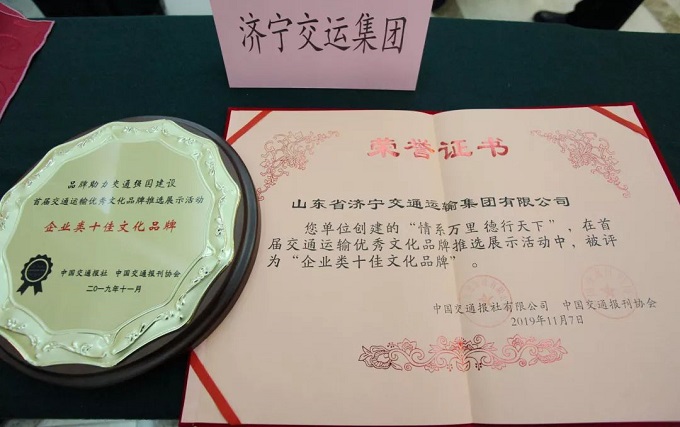 济宁交运集团
品牌助力交通强国建设
首届交通运输优秀文化品牌推选展示活动
企业类十佳文化品牌
中国交通报社 中国交通报刊协会
二〇一九年十一月
荣誉证书
山东省济宁交通运输集团有限公司
您单位创建的“情系万里 德行天下”,在首
届交通运输优秀文化品牌推选展示活动中,被评
为“企业类十佳文化品牌”。
中国交通报社有限公司 中国交通报刊协会
2019年11月7日